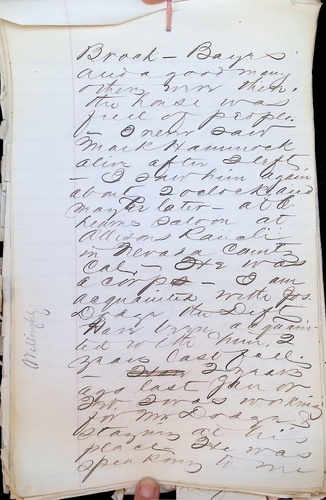 Brock – Bayes
and a good many
others were there,
the house was
full of people.
– I never saw
Mark Hammock
alive after I left
– I saw him again
about 2 oclock and
maybe later – at
Hearns Saloon at
Allisons Ranch
in Nevada County
Cal, – He was
a corps – I am
acquainted with Jos.
Dodge the Deft
Have been acquain-
ted with him 2
years last fall.
– 2 years
ago last Jan or
Feb I was working
for Mr Dodge &
staying at his
place. He was
speaking to me